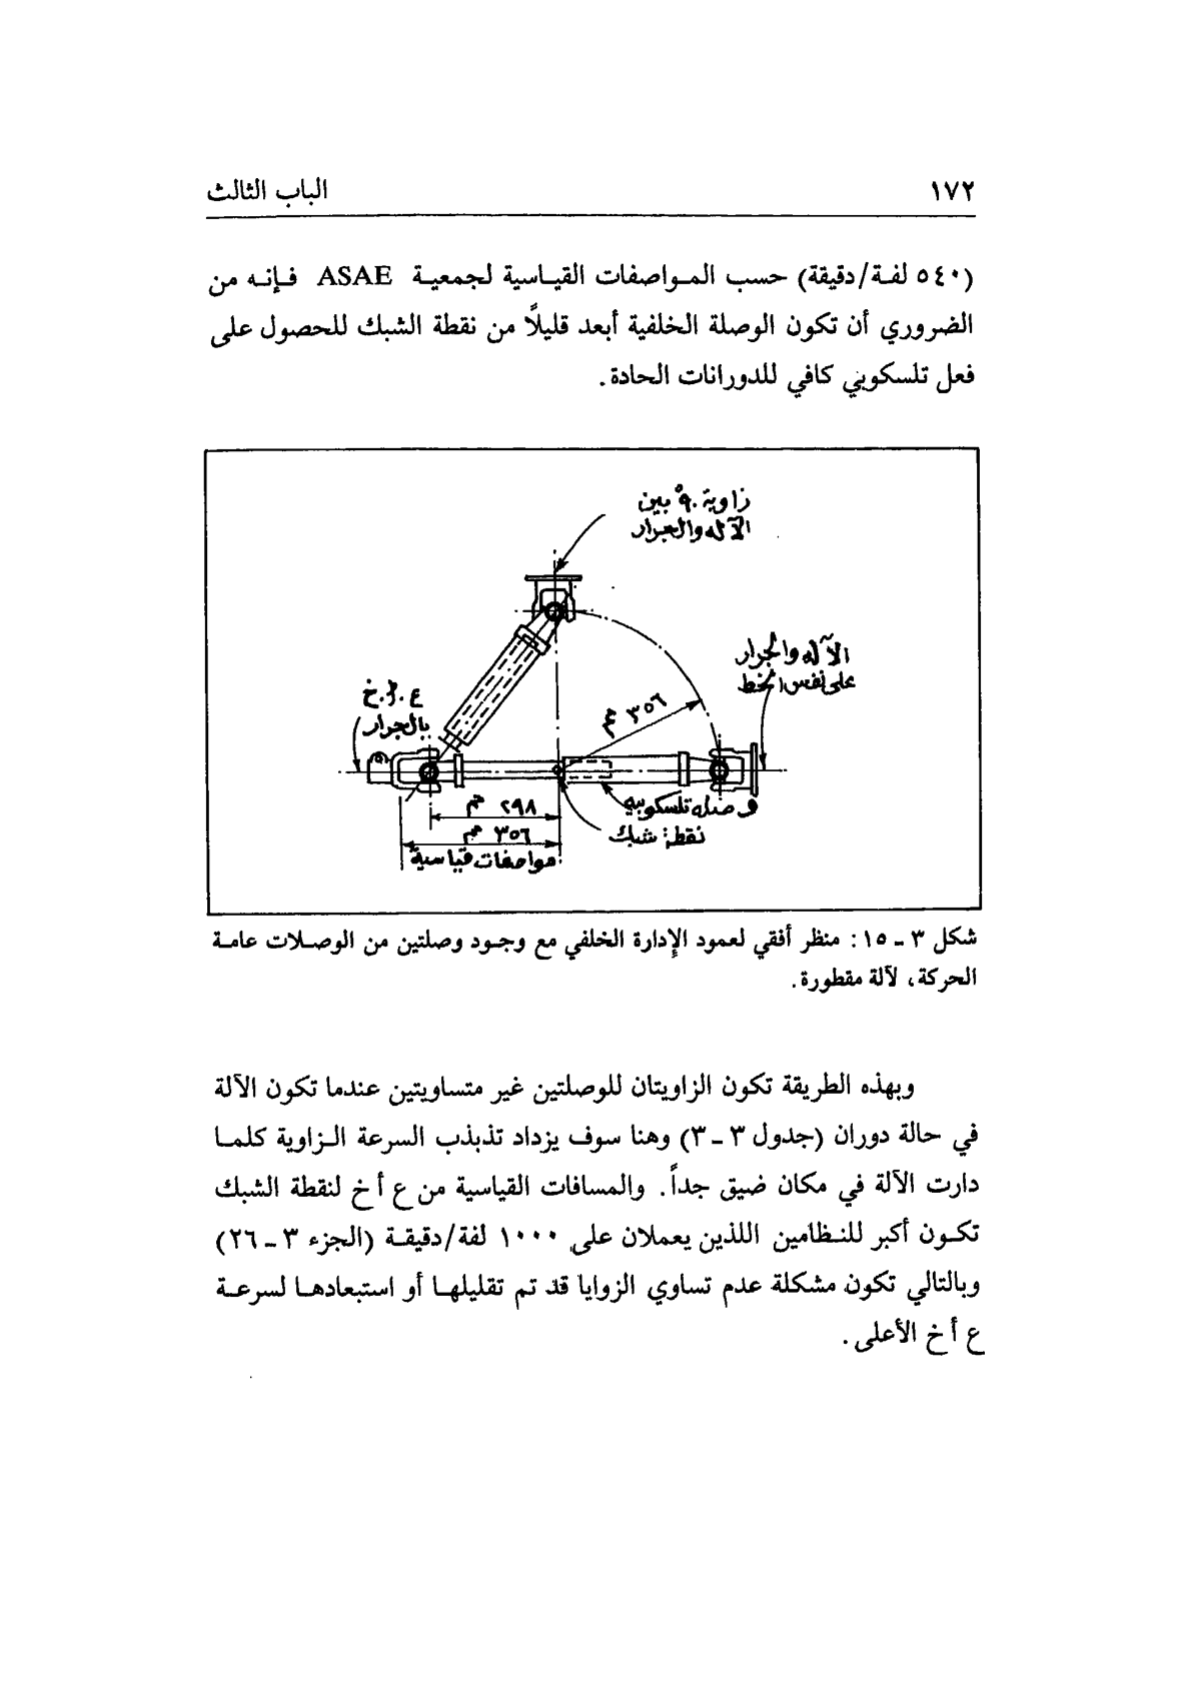 ١٧٢
الباب الثالث
(٥٤٠ لفة/دقيقة) حسب المواصفات القياسية لجمعية ASAE فإنه من
الضروري أن تكون الوصلة الخلفية أبعد قليلاً من نقطة الشبك للحصول على
فعل تلسكوبي كافي للدورانات الحادة.
زاوية ٩٠° بين
الآله والجرار
الآله والجرار
على نفس الخط
ع.أ.خ
بالجرار
٣٥٦ مم
وصله تلسكوبيه
٢٩٨ مم
نقطة شبك
٣٥٦ مم
مواصفات قياسية
شكل ٣ ـ ١٥: منظر أفقي لعمود الإدارة الخلفي مع وجود وصلتين من الوصلات عامة
الحركة، لآلة مقطورة.
وبهذه الطريقة تكون الزاويتان للوصلتين غير متساويتين عندما تكون الآلة
في حالة دوران (جدول ٣ ـ ٣) وهنا سوف يزداد تذبذب السرعة الزاوية كلما
دارت الآلة في مكان ضيق جداً. والمسافات القياسية من ع أ خ لنقطة الشبك
تكون أكبر للنظامين اللذين يعملان على ١٠٠٠ لفة/دقيقة (الجزء ٣ ـ ٢٦)
وبالتالي تكون مشكلة عدم تساوي الزوايا قد تم تقليلها أو استبعادها لسرعة
ع أ خ الأعلى.